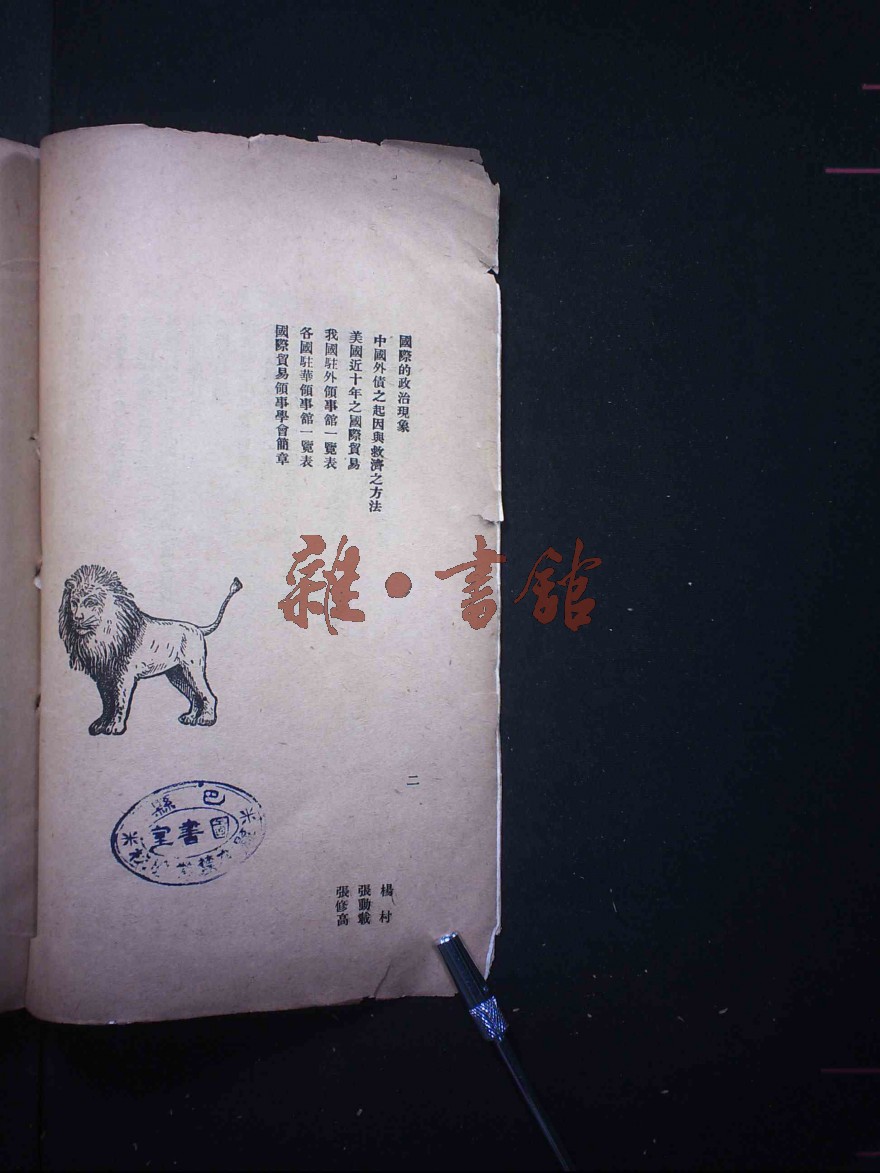 國際的政治現象
楊村
中國外債之起因與救濟之方法
張勳載
美國近十年之國際貿易
張修高
我國駐外領事館一覽表
各國駐華領事館一覽表
國際貿易領事學會簡章
二
雜·書館
巴縣
圖書室